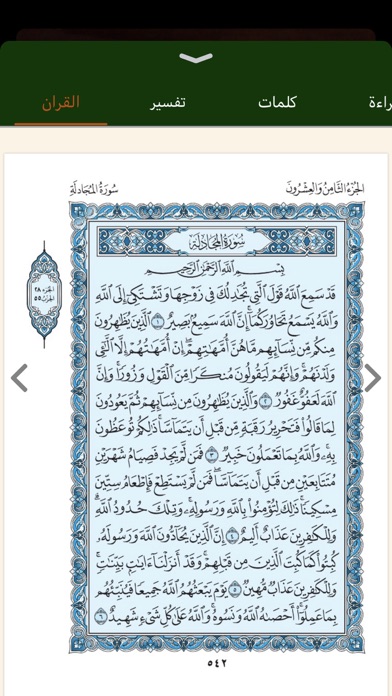 القرآن تفسير كلمات راءة
الجزء الثامن والعشرون سورة المجادلة
سورة المجادلة
بسم الله الرحمن الرحيم
قَدْ سَمِعَ ٱللَّهُ قَوْلَ ٱلَّتِى تُجَٰدِلُكَ فِى زَوْجِهَا وَتَشْتَكِىٓ إِلَى ٱللَّهِ
وَٱللَّهُ يَسْمَعُ تَحَاوُرَكُمَآ إِنَّ ٱللَّهَ سَمِيعٌۢ بَصِيرٌ ١ ٱلَّذِينَ يُظَٰهِرُونَ
مِنكُم مِّن نِّسَآئِهِم مَّا هُنَّ أُمَّهَٰتِهِمْ إِنْ أُمَّهَٰتُهُمْ إِلَّا ٱلَّٰٓـِٔى
وَلَدْنَهُمْ وَإِنَّهُمْ لَيَقُولُونَ مُنكَرًا مِّنَ ٱلْقَوْلِ وَزُورًا وَإِنَّ
ٱللَّهَ لَعَفُوٌّ غَفُورٌ ٢ وَٱلَّذِينَ يُظَٰهِرُونَ مِن نِّسَآئِهِمْ ثُمَّ يَعُودُونَ
لِمَا قَالُوا۟ فَتَحْرِيرُ رَقَبَةٍ مِّن قَبْلِ أَن يَتَمَآسَّا ذَٰلِكُمْ تُوعَظُونَ
بِهِۦ وَٱللَّهُ بِمَا تَعْمَلُونَ خَبِيرٌ ٣ فَمَن لَّمْ يَجِدْ فَصِيَامُ شَهْرَيْنِ
مُتَتَابِعَيْنِ مِن قَبْلِ أَن يَتَمَآسَّا فَمَن لَّمْ يَسْتَطِعْ فَإِطْعَامُ سِتِّينَ
مِسْكِينًا ذَٰلِكَ لِتُؤْمِنُوا۟ بِٱللَّهِ وَرَسُولِهِۦ وَتِلْكَ حُدُودُ ٱللَّهِ
وَلِلْكَٰفِرِينَ عَذَابٌ أَلِيمٌ ٤ إِنَّ ٱلَّذِينَ يُحَآدُّونَ ٱللَّهَ وَرَسُولَهُۥ
كُبِتُوا۟ كَمَا كُبِتَ ٱلَّذِينَ مِن قَبْلِهِمْ وَقَدْ أَنزَلْنَآ ءَايَٰتٍۭ بَيِّنَٰتٍ
وَلِلْكَٰفِرِينَ عَذَابٌ مُّهِينٌ ٥ يَوْمَ يَبْعَثُهُمُ ٱللَّهُ جَمِيعًا فَيُنَبِّئُهُم
بِمَا عَمِلُوٓا۟ أَحْصَىٰهُ ٱللَّهُ وَنَسُوهُ وَٱللَّهُ عَلَىٰ كُلِّ شَىْءٍ شَهِيدٌ ٦
الجزء ٢٨
الحزب ٥٥
٥٤٢